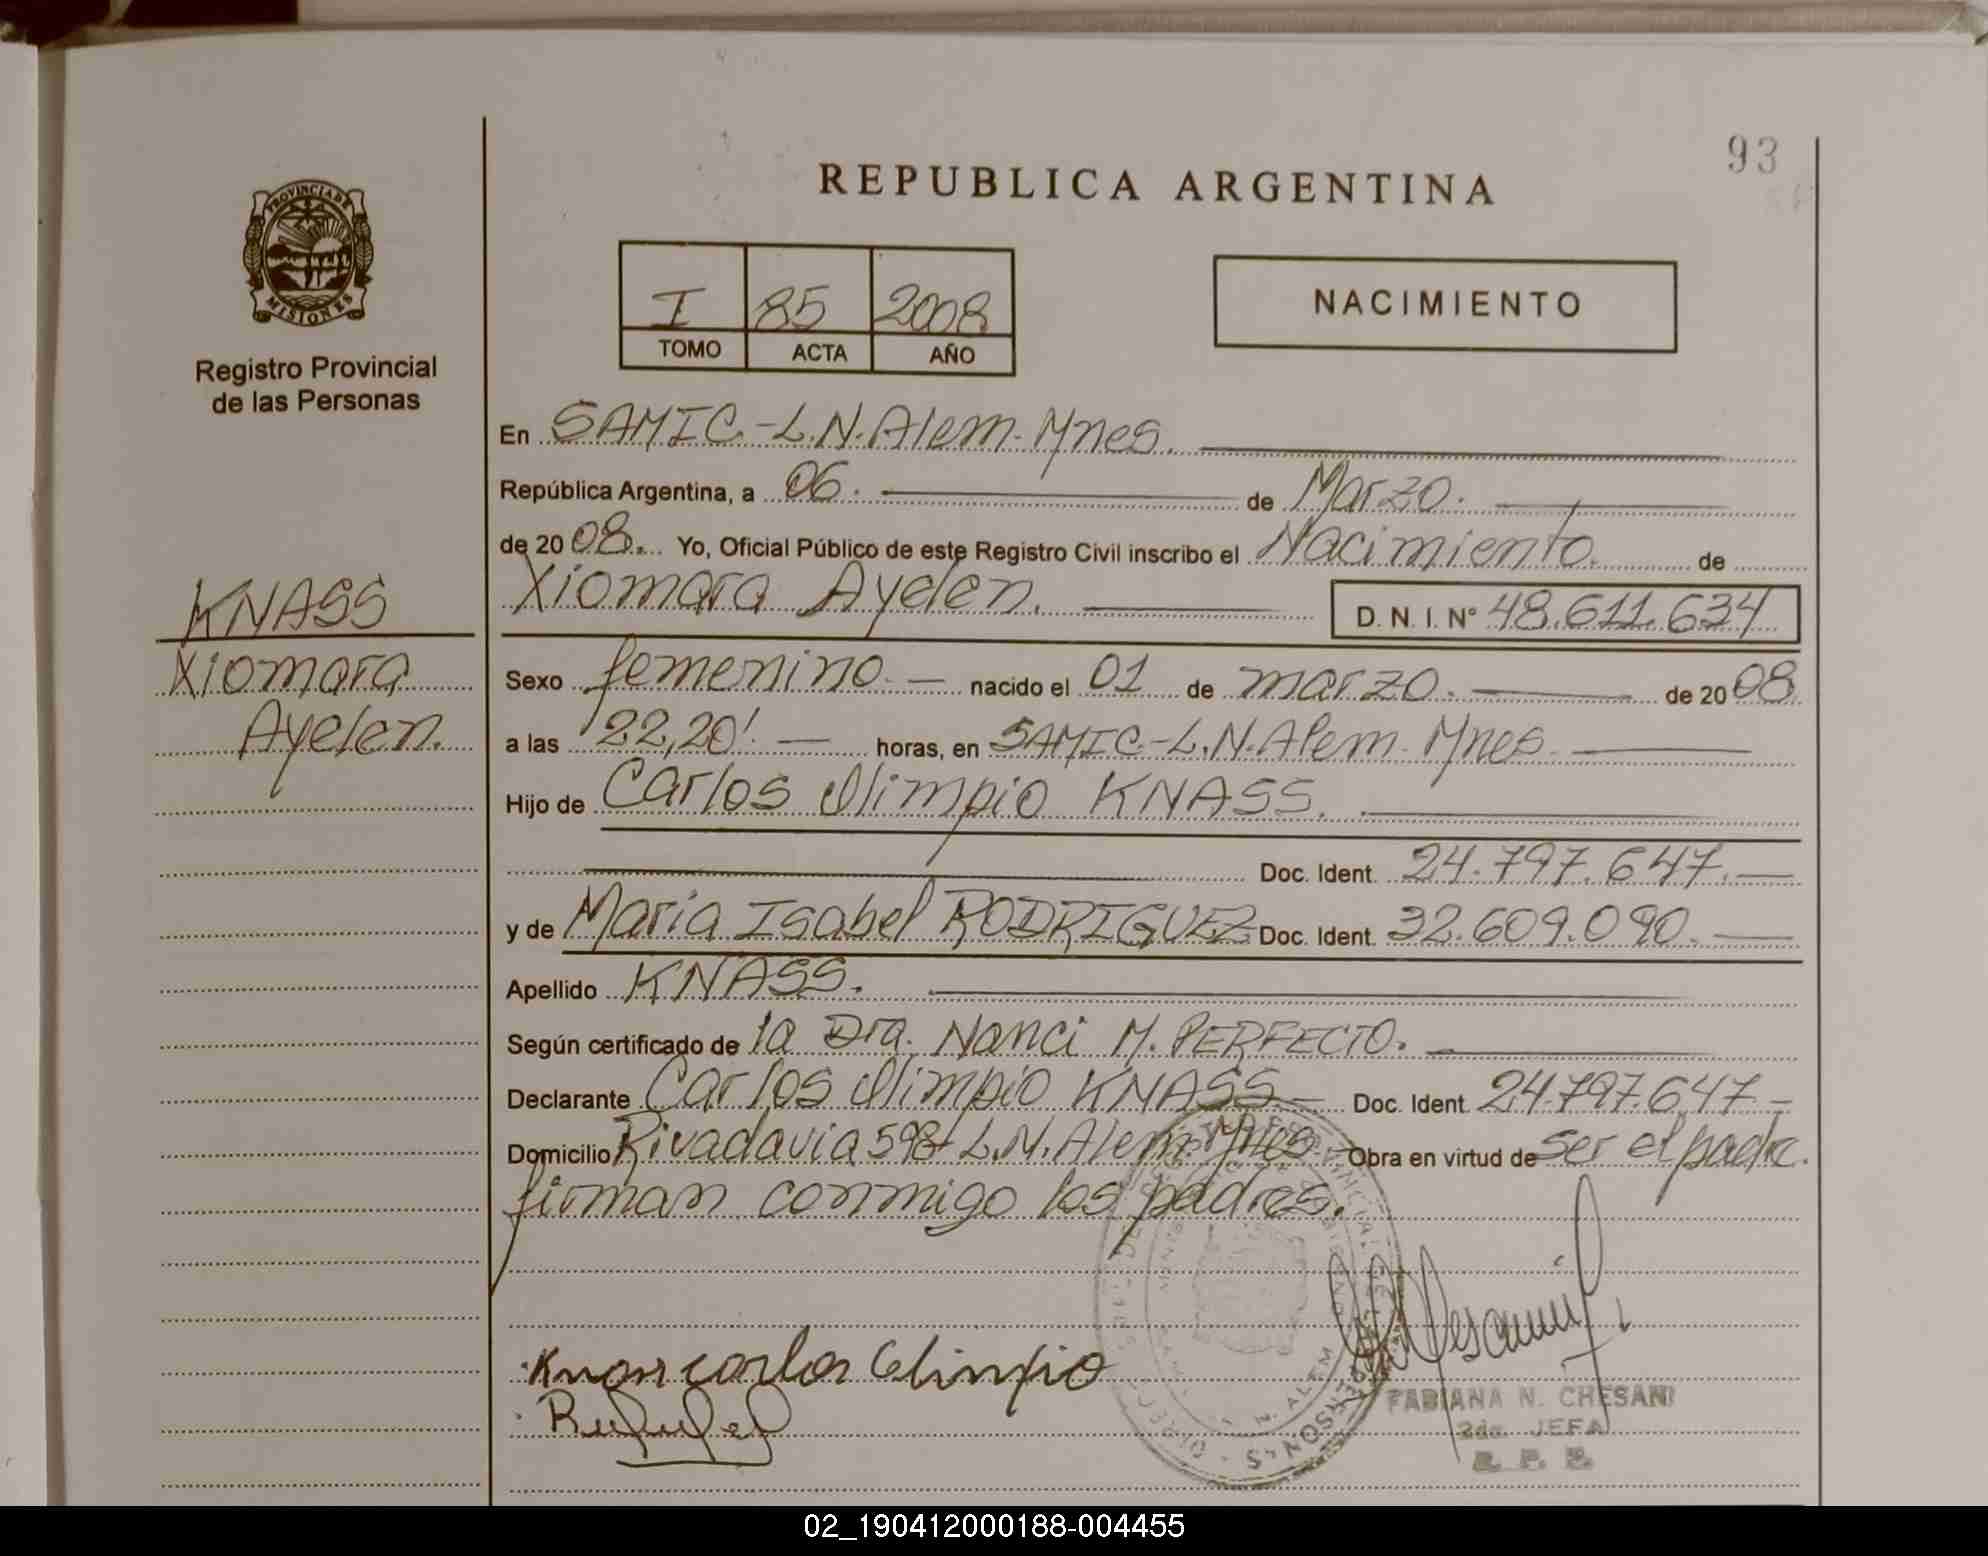 93
REPUBLICA ARGENTINA
PROVINCIA DE
MISIONES
Registro Provincial
de las Personas
I 85 2008
TOMO ACTA AÑO
NACIMIENTO
En SAMIC.-L.N.Alem-Mnes.
República Argentina, a 06. de Marzo.
de 2008. Yo, Oficial Público de este Registro Civil inscribo el Nacimiento. de
Xiomara Ayelen. D. N. I. Nº 48.611.634
KNASS
Xiomara
Ayelen.
Sexo femenino. nacido el 01 de marzo. de 2008
a las 22,20'. horas, en SAMIC.-L.N.Alem-Mnes.
Hijo de Carlos Olimpio KNASS.
Doc. Ident. 24.797.647.
y de Maria Isabel RODRIGUEZ Doc. Ident. 32.609.090.
Apellido KNASS.
Según certificado de la Dra. Nanci M. PERFECTO.
Declarante Carlos Olimpio KNASS Doc. Ident. 24.797.647
Domicilio Rivadavia 598 L.N.Alem-Mnes Obra en virtud de ser el padre.
firman conmigo los padres.
Knass carlos Olimpio
FABIANA N. CHESANI
2da. JEFA
R. P. P.
02_190412000188-004455